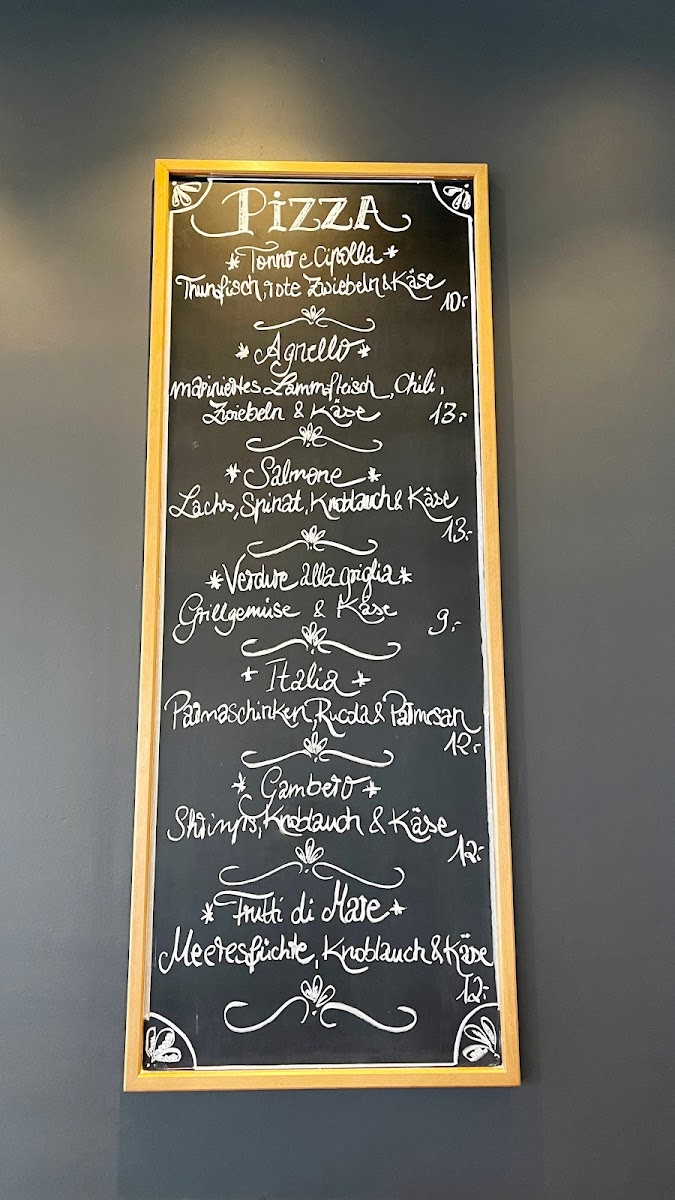 PIZZA
* Tonno e Cipolla *
Thunfisch, rote Zwiebeln & Käse
10,-
* Agnello *
mariniertes Lammfleisch, Chili,
Zwiebeln & Käse 13,-
* Salmone *
Lachs, Spinat, Knoblauch & Käse
13,-
* Verdure alla griglia *
Grillgemüse & Käse 9,-
* Italia *
Parmaschinken, Rucola & Parmesan
12,-
* Gambero *
Shrimps, Knoblauch & Käse
12,-
* Frutti di Mare *
Meeresfüchte, Knoblauch & Käse
12,-